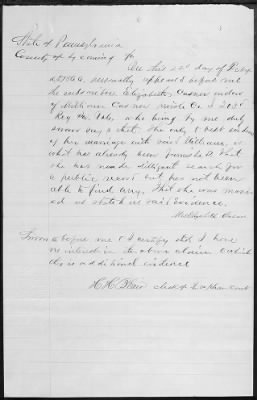 State of Pennsylvania
County of Lycoming
On this day of
personally appeared before me
the subscriber Elizabeth Casner widow
of William Casner Co. 203
Reg Pa Vols who being by me duly
sworn says that the only & best evidence
of her marriage with said William, is
what has already been furnished that
she has made diligent search for
a public record but has not been
able to find any. That she was married
as in said Evidence.
Elizabeth Casner
Sworn before me & I certify that I have
no interest in the above claim to which
this is additional evidence
Clerk of Court